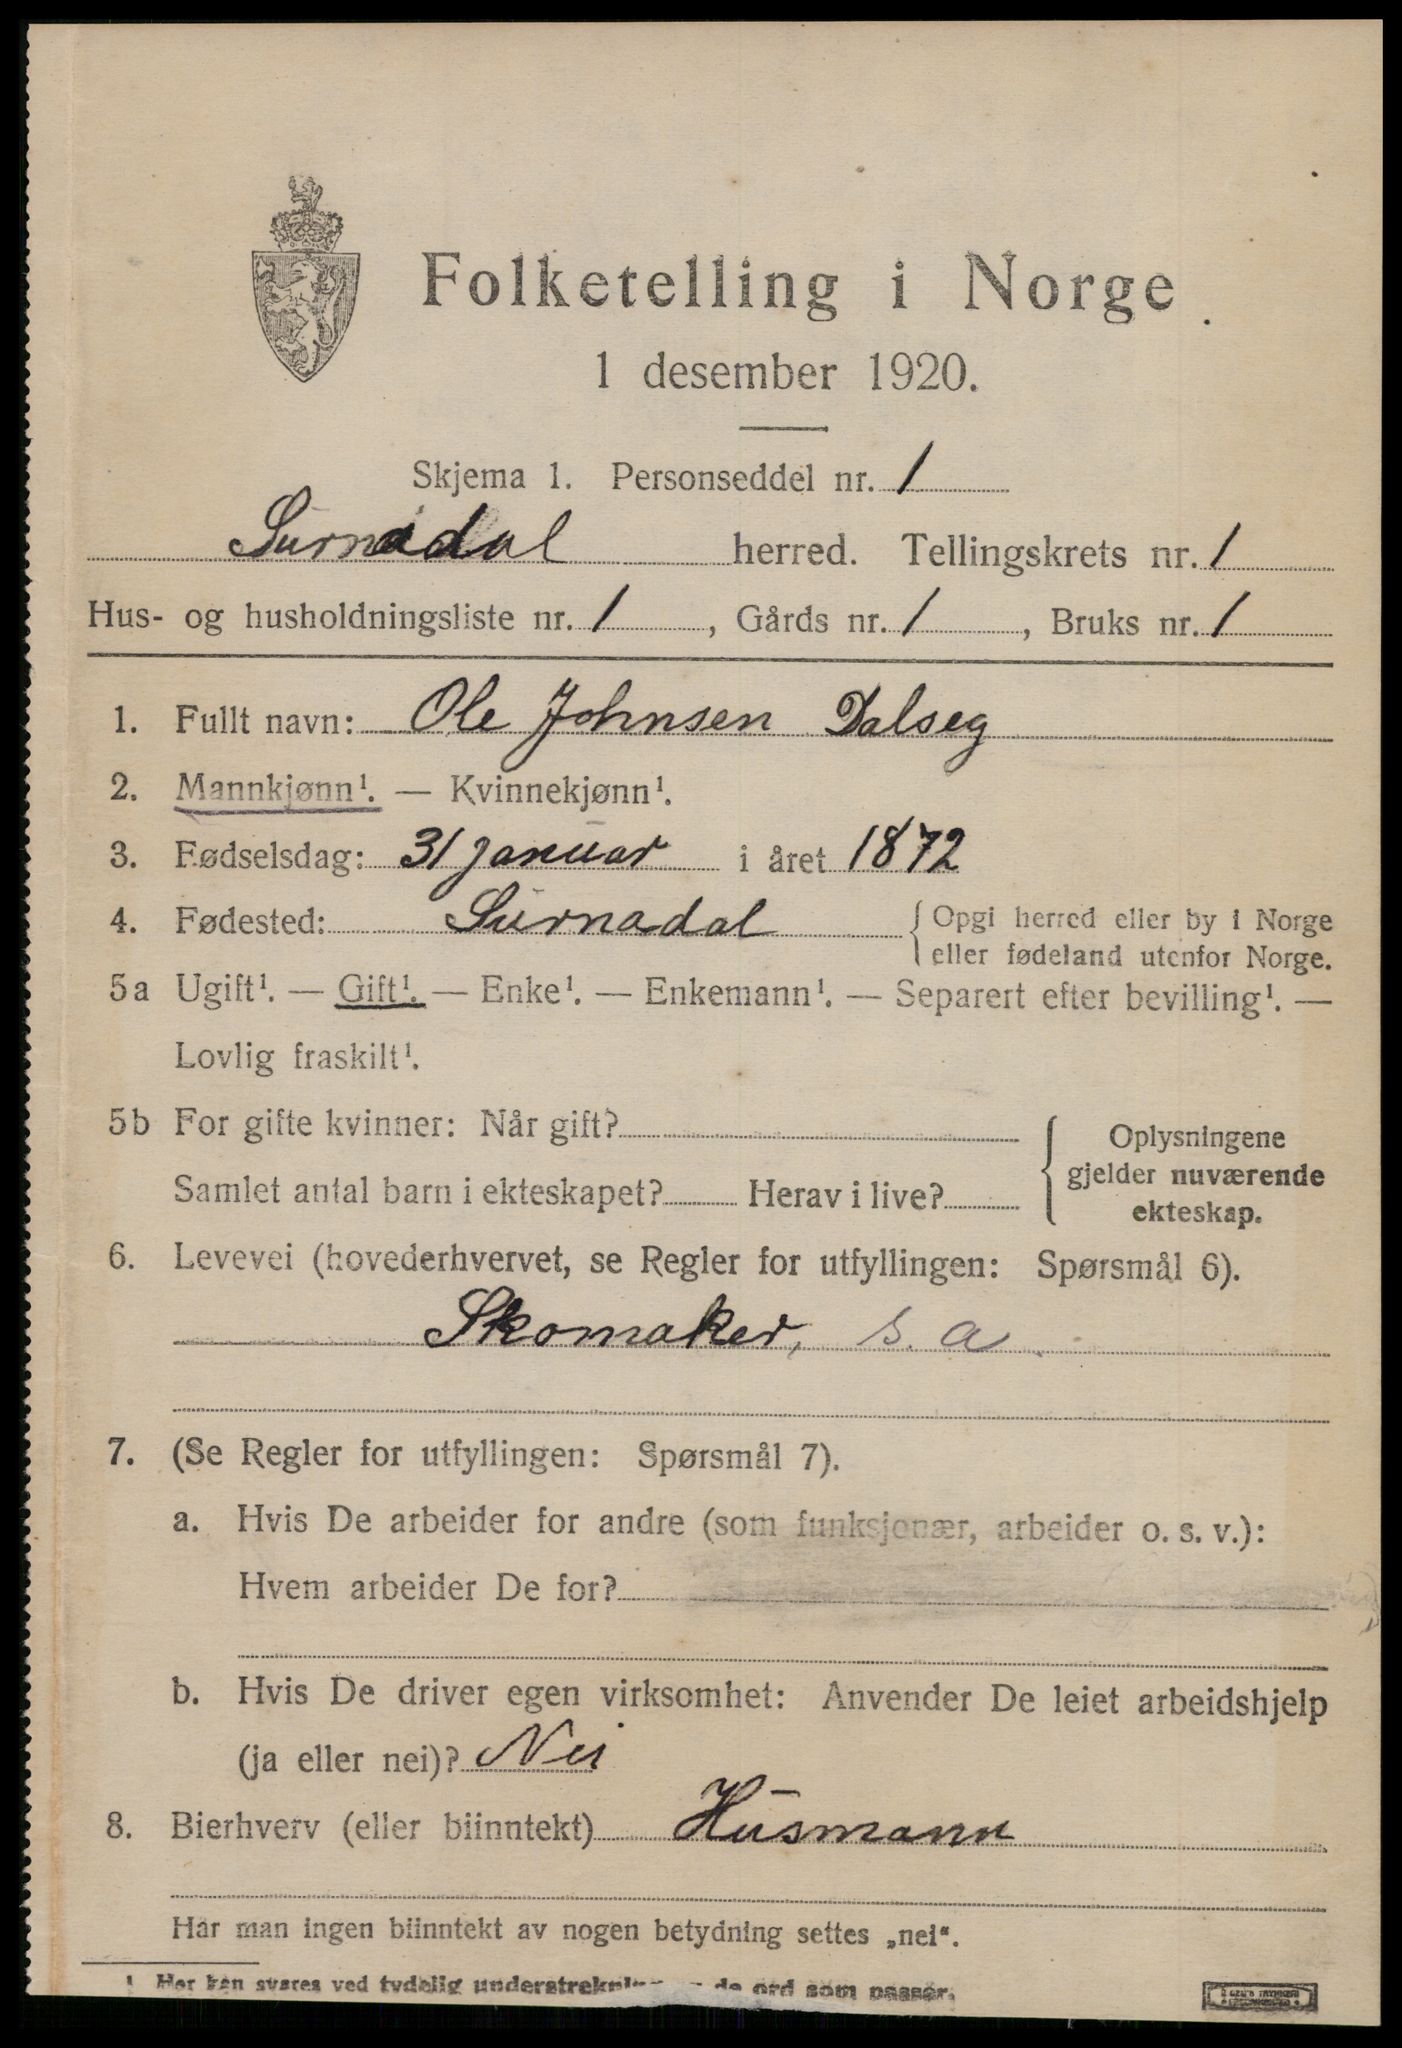 Folketelling i Norge
1 desember 1920.
Skjema 1. Personseddel nr. 1
Surnadal herred. Tellingskrets nr. 1
Hus- og husholdningsliste nr. 1, Gårds nr. 1, Bruks nr. 1
1. Fullt navn: Ole Johnsen Dalseg
2. Mannkjønn¹. — Kvinnekjønn¹.
3. Fødselsdag: 31 januar i året 1872
4. Fødested: Surnadal { Opgi herred eller by i Norge
eller fødeland utenfor Norge.
5a Ugift¹. — Gift¹. — Enke¹. — Enkemann¹. — Separert efter bevilling¹. —
Lovlig fraskilt¹.
5b For gifte kvinner: Når gift?
Samlet antal barn i ekteskapet? Herav i live?
{ Oplysningene
gjelder nuværende
ekteskap.
6. Levevei (hovederhvervet, se Regler for utfyllingen: Spørsmål 6).
Skomaker, s. a
7. (Se Regler for utfyllingen: Spørsmål 7).
a. Hvis De arbeider for andre (som funksjonær, arbeider o. s. v.):
Hvem arbeider De for?
b. Hvis De driver egen virksomhet: Anvender De leiet arbeidshjelp
(ja eller nei)? Nei
8. Bierhverv (eller biinntekt) Husmann
Har man ingen biinntekt av nogen betydning settes „nei“.
1 Her kan svares ved tydelig understrekning av de ord som passer.